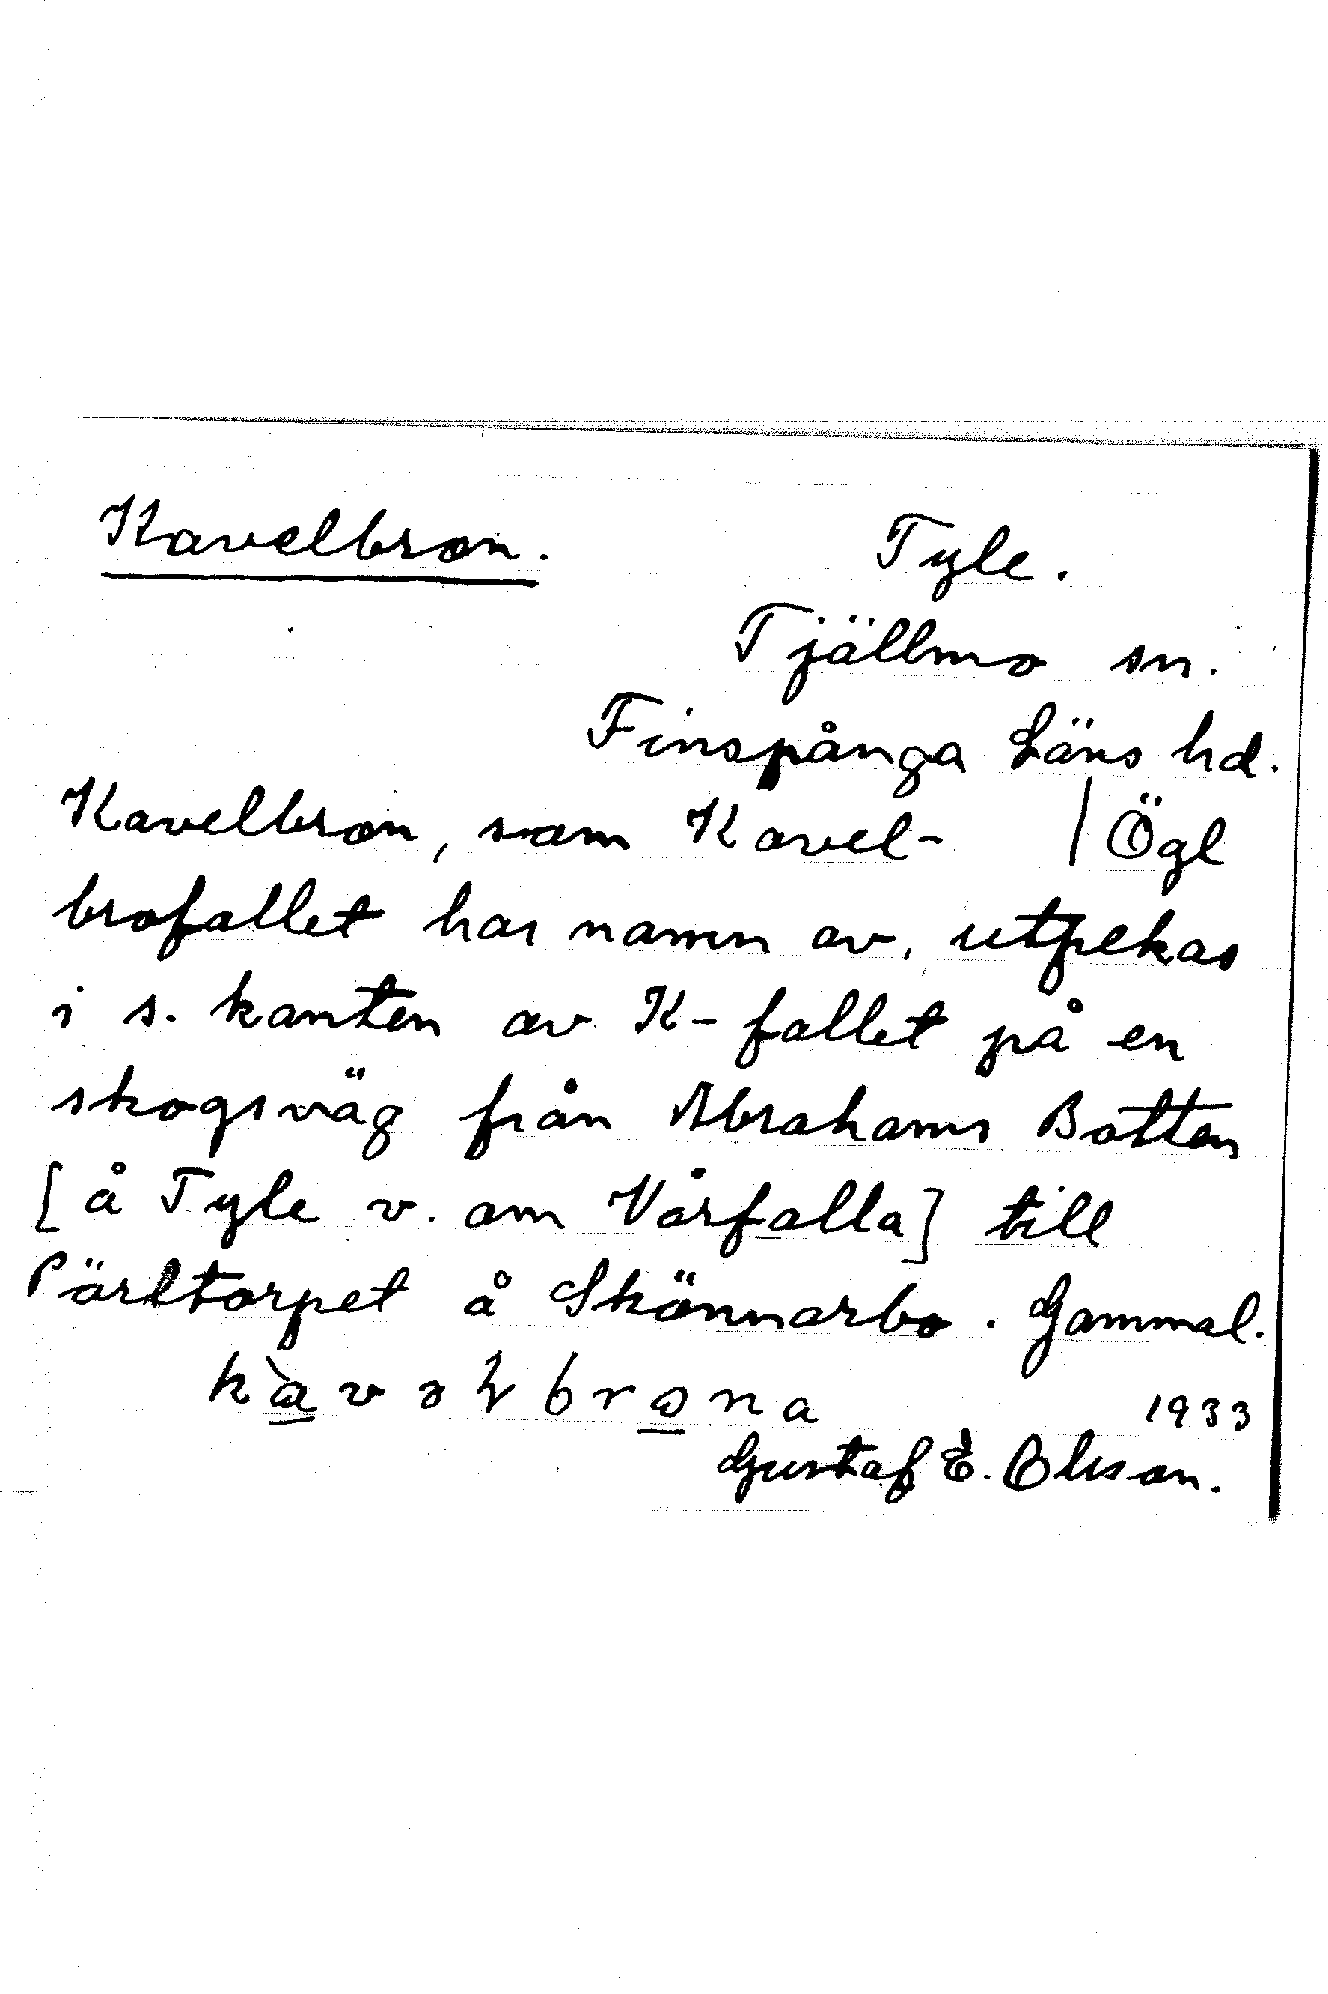 Kavelbron.
Tyle.
Tjällmo sn.
Finspånga Läns hd.
Kavelbron, som Kavel- / Ögl
brofallet har namn av, utpekas
i s. kanten av K-fallet på en
skogsväg från Abrahams Botten
[å Tyle v. om Vårfalla] till
Pärltorpet å Skönnarbo. Gammal.
1933
Gustaf E. Olsson.